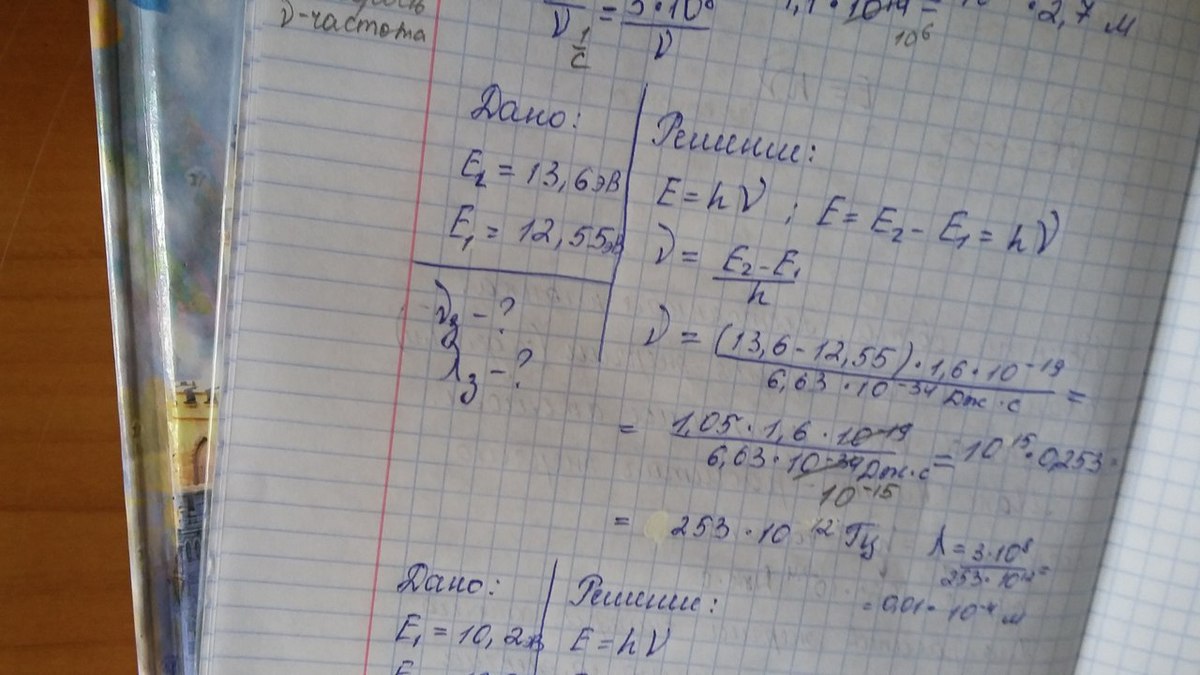 ν-частота
ν 1/с = 3·10⁸/ν 10⁶ ·2,7 м
Дано:
E₂ = 13,6эВ
E₁ = 12,55эВ
ν₃ - ?
λ₃ - ?
Решение:
E = hν ; E = E₂ - E₁ = hν
ν = E₂ - E₁ / h
ν = (13,6 - 12,55)·1,6·10⁻¹⁹ / 6,63·10⁻³⁴ Дж·с =
= 1,05·1,6·10⁻¹⁹ / 6,63·10⁻³⁴ Дж·с = 10¹⁵·0,253·
10⁻¹⁵
= 253·10¹² Гц
λ = 3·10⁸ / 253·10¹² =
= 0,01·10⁻⁴ м
Дано:
E₁ = 10,2эВ
Решение:
E = hν